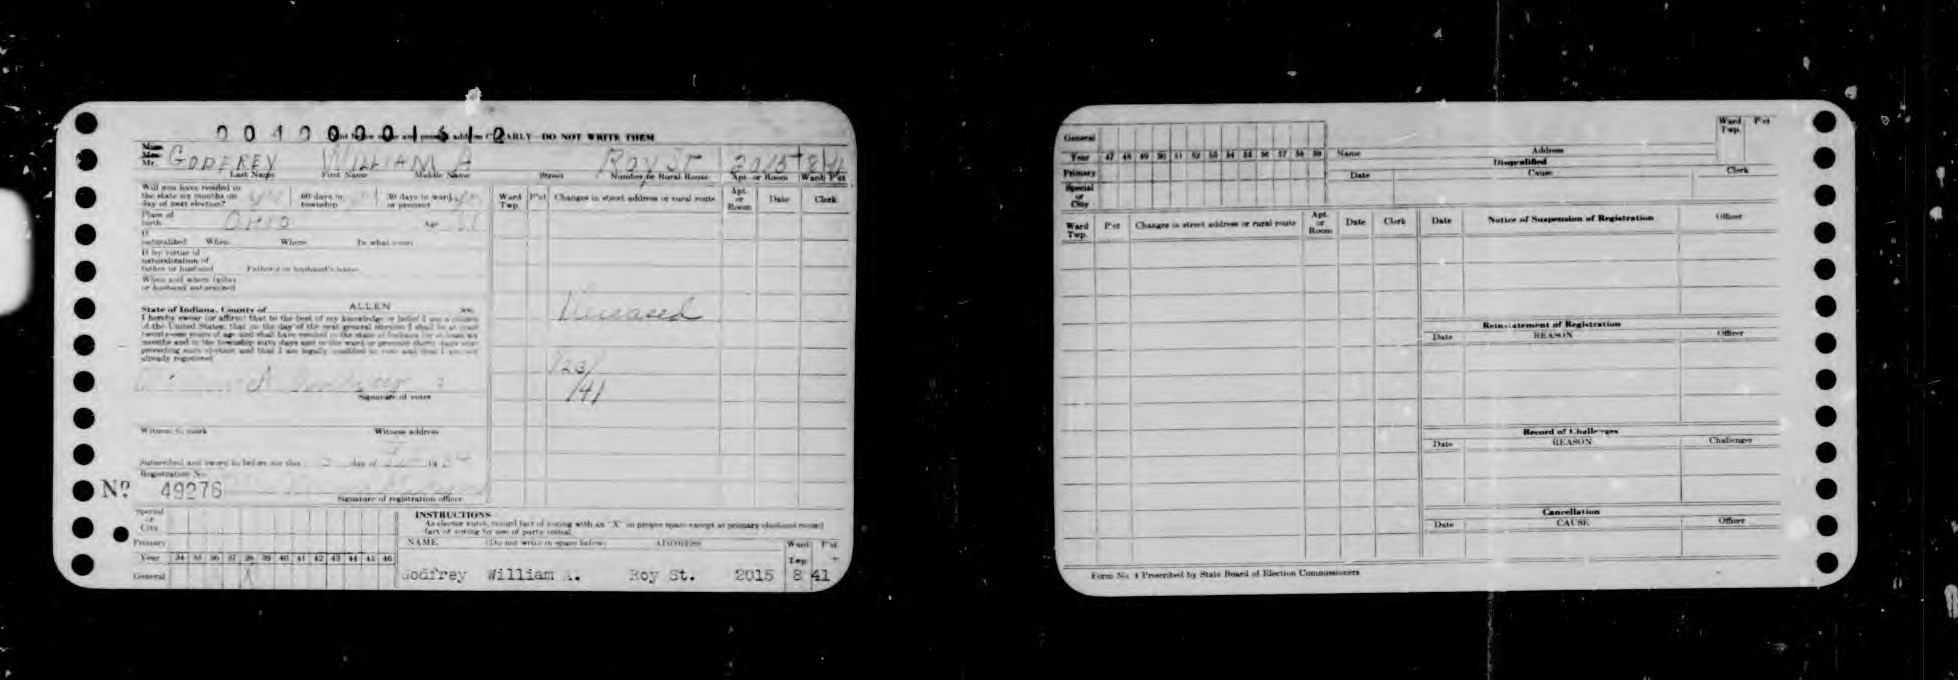 004000001612
CLEARLY - DO NOT WRITE THEM
Mr. GODFREY WILLIAM A ROY ST 2015 8 41
Last Name First Name Middle Name Street Number or Rural Route Apt. or Room Ward P'ct
Will you have resided in
the state six months on
day of next election? yes 60 days in township 30 days in ward or precinct
Place of birth OHIO Age
If naturalized When Where In what court
If by virtue of
naturalization of
father or husband Father's or husband's name
When and where father
or husband naturalized
State of Indiana, County of ALLEN
I hereby swear (or affirm) that to the best of my knowledge or belief I am a citizen
of the United States; that on the day of the next general election I shall be at least
twenty-one years of age and shall have resided in the state of Indiana for at least six
months and in the township sixty days and in the ward or precinct thirty days next
preceding such election and that I am legally qualified to vote and that I am not
already registered
Signature of voter
Witness to mark Witness address
Subscribed and sworn to before me this day of 19
Registration No.
No 49276
Signature of registration officer
Ward Twp. P'ct Changes in street address or rural route Apt. or Room Date Clerk
Deceased
1/23/
/41
Special or City
Primary
Year 34 35 36 37 38 39 40 41 42 43 44 45 46
General X
INSTRUCTIONS
As elector votes, record fact of voting with an "X" in proper space except at primary elections record
fact of voting by use of party initial.
NAME (Do not write in space below) ADDRESS Ward Twp P'ct
Godfrey William A. Roy St. 2015 8 41
General
Year 47 48 49 50 51 52 53 54 55 56 57 58 59
Primary
Special or City
Name Address Ward Twp. P'ct
Disqualified
Date Cause Clerk
Ward Twp. P'ct Changes in street address or rural route Apt. or Room Date Clerk
Date Notice of Suspension of Registration Officer
Reinstatement of Registration
Date REASON Officer
Record of Challenges
Date REASON Challenger
Cancellation
Date CAUSE Officer
Form No. 4 Prescribed by State Board of Election Commissioners